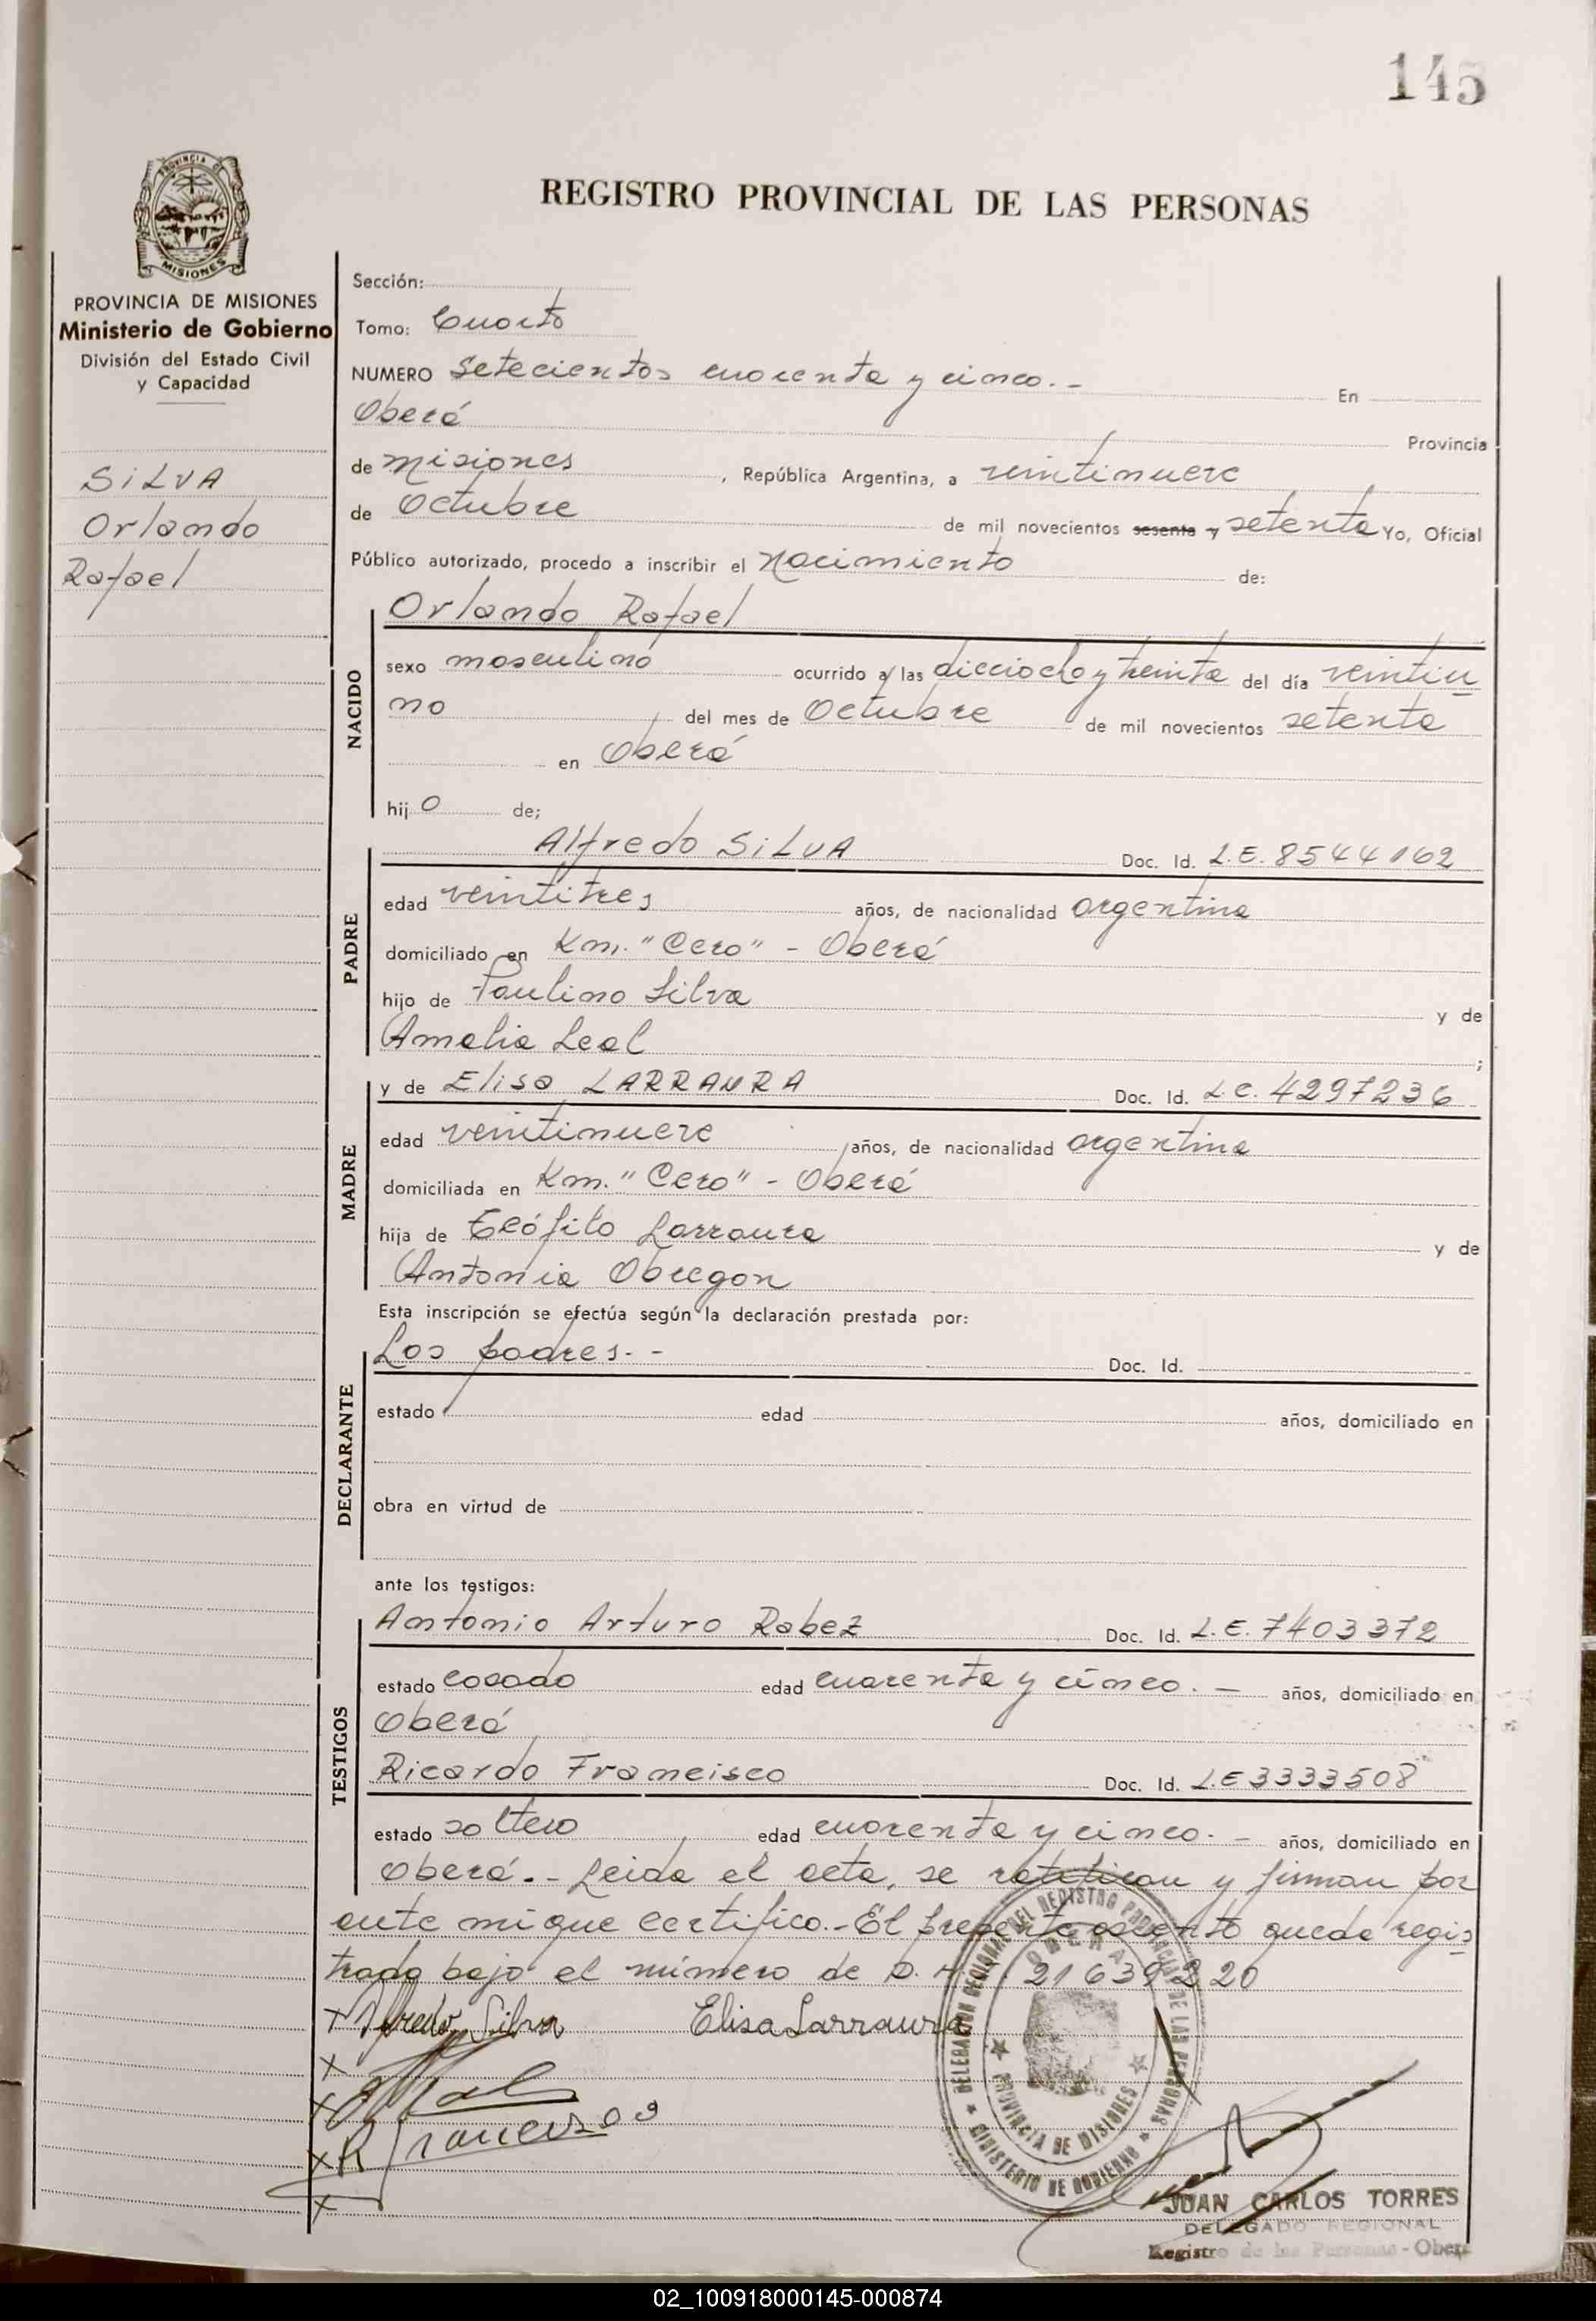 145
REGISTRO PROVINCIAL DE LAS PERSONAS
PROVINCIA DE MISIONES
PROVINCIA DE MISIONES
Ministerio de Gobierno
División del Estado Civil
y Capacidad
SILVA
Orlando
Rafael
Sección:
Tomo: Cuarto
NUMERO Setecientos cuarenta y cinco.- En
Oberá Provincia
de Misiones, República Argentina, a veintinueve
de Octubre de mil novecientos sesenta y setenta Yo, Oficial
Público autorizado, procedo a inscribir el Nacimiento de:
NACIDO
Orlando Rafael
sexo masculino ocurrido a las dieciocho y treinta del día veintiu
no del mes de Octubre de mil novecientos setenta
en Oberá
hijo de;
PADRE
Alfredo SILVA Doc. Id. L.E. 8544162
edad veintitres años, de nacionalidad argentina
domiciliado en Km. "Cero" - Oberá
hijo de Paulino Silva y de
Amalia Leal;
MADRE
y de Elisa LARRAURA Doc. Id. L.C. 4297236
edad veintinueve años, de nacionalidad argentina
domiciliada en Km. "Cero" - Oberá
hija de Teófilo Larraura y de
Antonia Obregon
Esta inscripción se efectúa según la declaración prestada por:
DECLARANTE
Los padres.- Doc. Id.
estado edad años, domiciliado en
obra en virtud de
ante los testigos:
TESTIGOS
Antonio Arturo Rabez Doc. Id. L.E. 7403372
estado casado edad cuarenta y cinco.- años, domiciliado en
Oberá
Ricardo Francisco Doc. Id. L.E 3333508
estado soltero edad cuarenta y cinco.- años, domiciliado en
Oberá.- Leida el acta, se ratifican y firman por
ante mi que certifico.- El presente asiento queda regis
trado bajo el número de D. 21639220
Alfredo Silva Elisa Larraura
R Francisco
DELEGACION REGIONAL DEL REGISTRO PROVINCIAL DE LAS PERSONAS
OBERA
PROVINCIA DE MISIONES
MINISTERIO DE GOBIERNO
JUAN CARLOS TORRES
DELEGADO REGIONAL
Registro de las Personas - Oberá
02_100918000145-000874